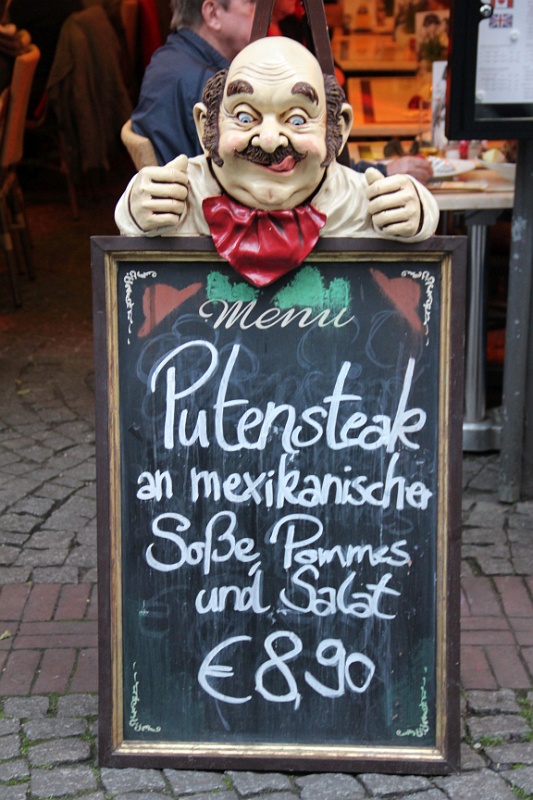 Menu
Putensteak
an mexikanischer
Soße, Pommes
und Salat
€8,90